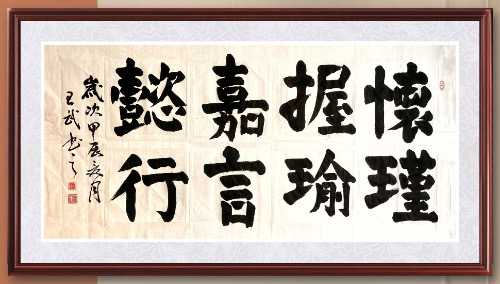 懷瑾
握瑜
嘉言
懿行
歲次甲辰亥月
王武书之